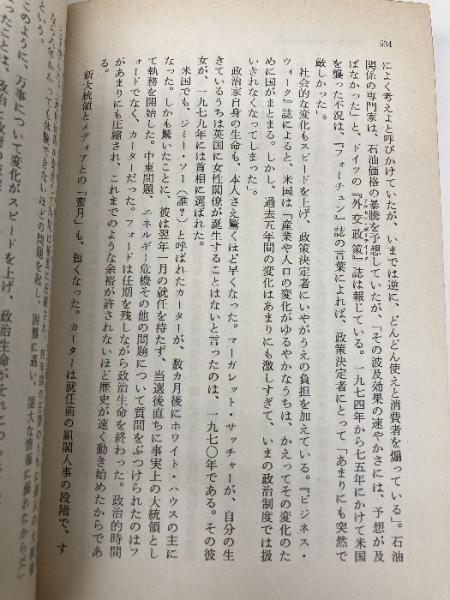 534
によく考えよと呼びかけていたが、いまでは逆に、どんどん使えと消費者を煽っている」。石油
関係の専門家は、石油価格の暴騰を予想していたが、「その波及効果の速やかさには、予想が及
ばなかった」と、ドイツの『外交政策』誌は報じている。一九七四年から七五年にかけて米国
を襲った不況は、『フォーチュン』誌の言葉によれば、政策決定者にとって「あまりにも突然で
厳しかった」。
社会的な変化もスピードを上げ、政策決定者にいやがうえの負担を加えている。『ビジネス・
ウィーク』誌によると、米国は「産業や人口の変化がゆるやかなうちは、かえってその変化のた
めに国がまとまる。しかし、過去五年間の変化はあまりにも激しすぎて、いまの政治制度では扱
いきれなくなってしまった」。
政治家自身の生命も、本人さえ驚くほど早くなった。マーガレット・サッチャーが、自分の生
きているうちは英国に女性閣僚が誕生することはないと言ったのは、一九七〇年である。その彼
女が、一九七九年には首相に選ばれた。
米国でも、ジミー・フー（誰？）と呼ばれたカーターが、数カ月後にホワイト・ハウスの主に
なった。しかも驚いたことに、彼は翌年一月の就任を待たず、当選後直ちに事実上の大統領とし
て執務を開始した。中東問題、エネルギー危機その他の問題について質問をぶつけられたのはフ
ォードでなく、カーターだった。フォードは任期を残しながら政治生命を終わった。政治的時間
があまりにも圧縮され、これまでのような余裕が許されないほど歴史が速く動き始めたからであ
る。
新大統領とメディアとの「蜜月」も、短くなった。カーターは就任前の組閣人事の段階で、す
という。
このように、万事について変化がスピードを上げ、政治生命がそれにつ